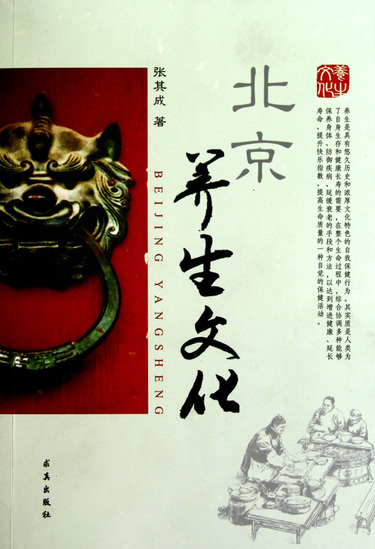 北京
养生文化
張其成 著
BEIJING YANGSHENG
養生
文化
养生是具有悠久历史和浓厚文化特色的自我保健行为。其实质是人类为
了自身生存和健康长寿的需要，在整个生命过程中，综合协调多种能够
保养身体、防御疾病、延缓衰老的手段和方法，以达到增进健康、延长
寿命、提升快乐指数、提高生命质量的一种自觉的保健活动。
求真出版社